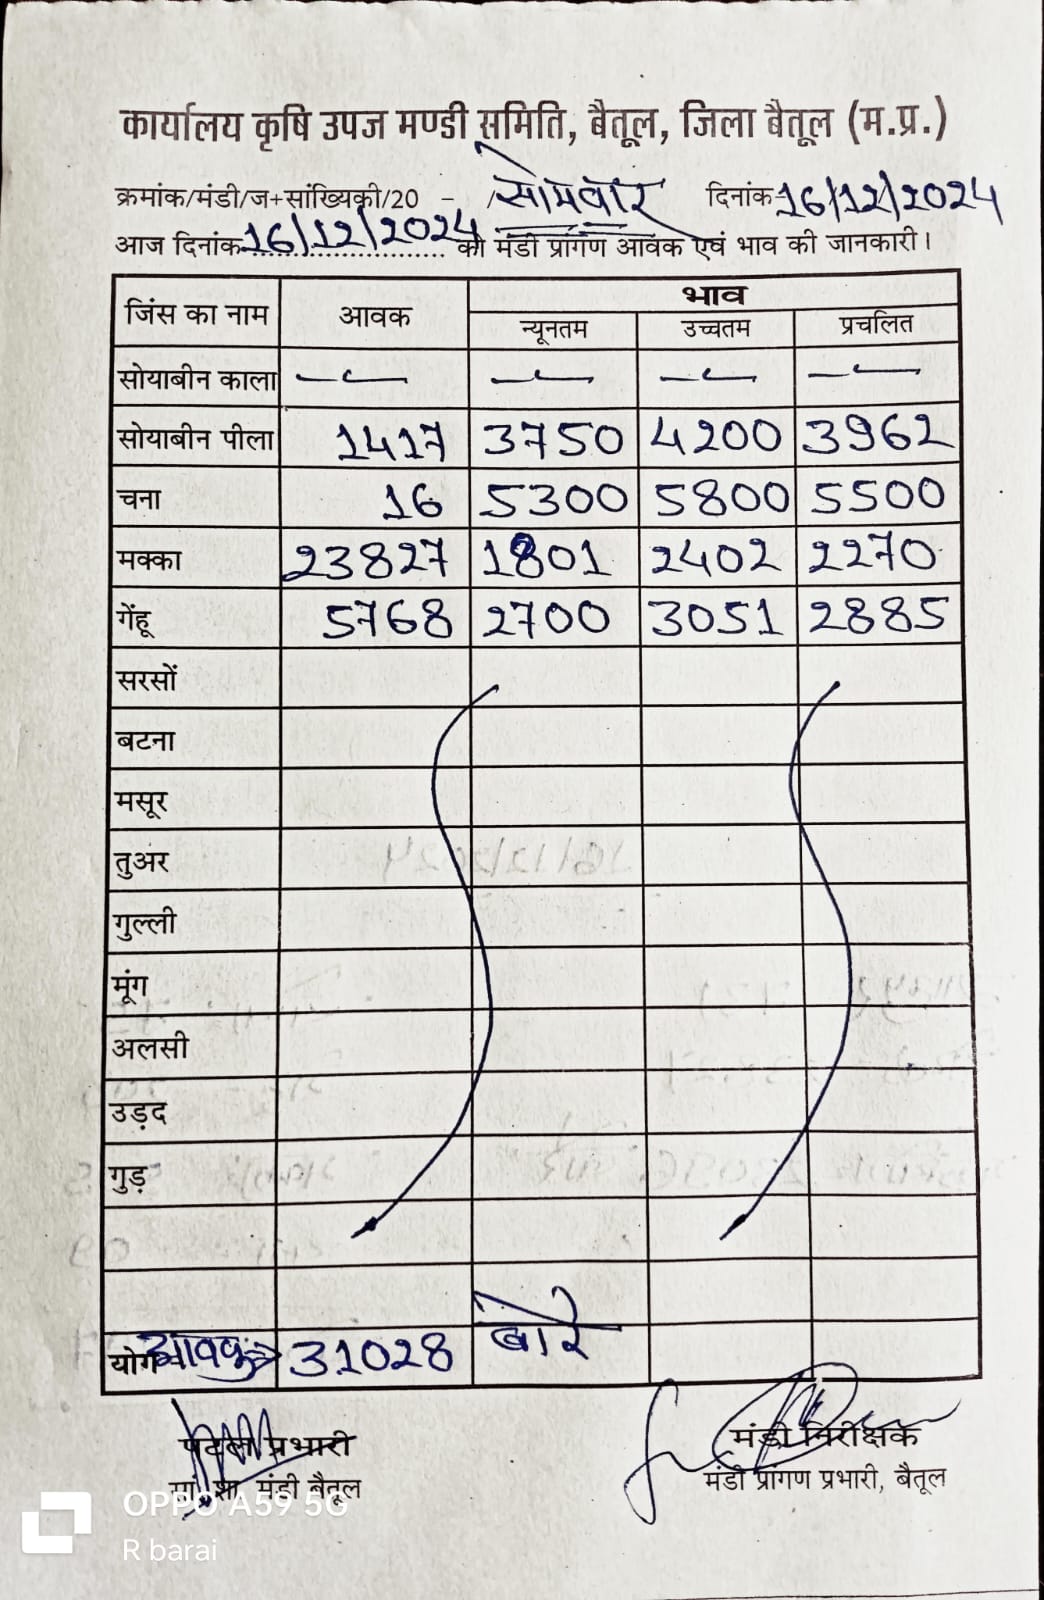 कार्यालय कृषि उपज मण्डी समिति, बैतूल, जिला बैतूल (म.प्र.)
क्रमांक/मंडी/ज+सांख्यिकी/20 - /सोमवार दिनांक 16/12/2024
आज दिनांक 16/12/2024 को मंडी प्रांगण आवक एवं भाव की जानकारी।
जिंस का नाम आवक भाव
न्यूनतम उच्चतम प्रचलित
सोयाबीन काला — — — —
सोयाबीन पीला 1417 3750 4200 3962
चना 16 5300 5800 5500
मक्का 23827 1801 2402 2270
गेंहू 5768 2700 3051 2885
सरसों
बटना
मसूर
तुअर
गुल्ली
मूंग
अलसी
उड़द
गुड़
योग आवक 31028 बोरे
प्रभारी मंडी निरीक्षक
मंडी बैतूल मंडी प्रांगण प्रभारी, बैतूल
OPPO A59 5G
R barai